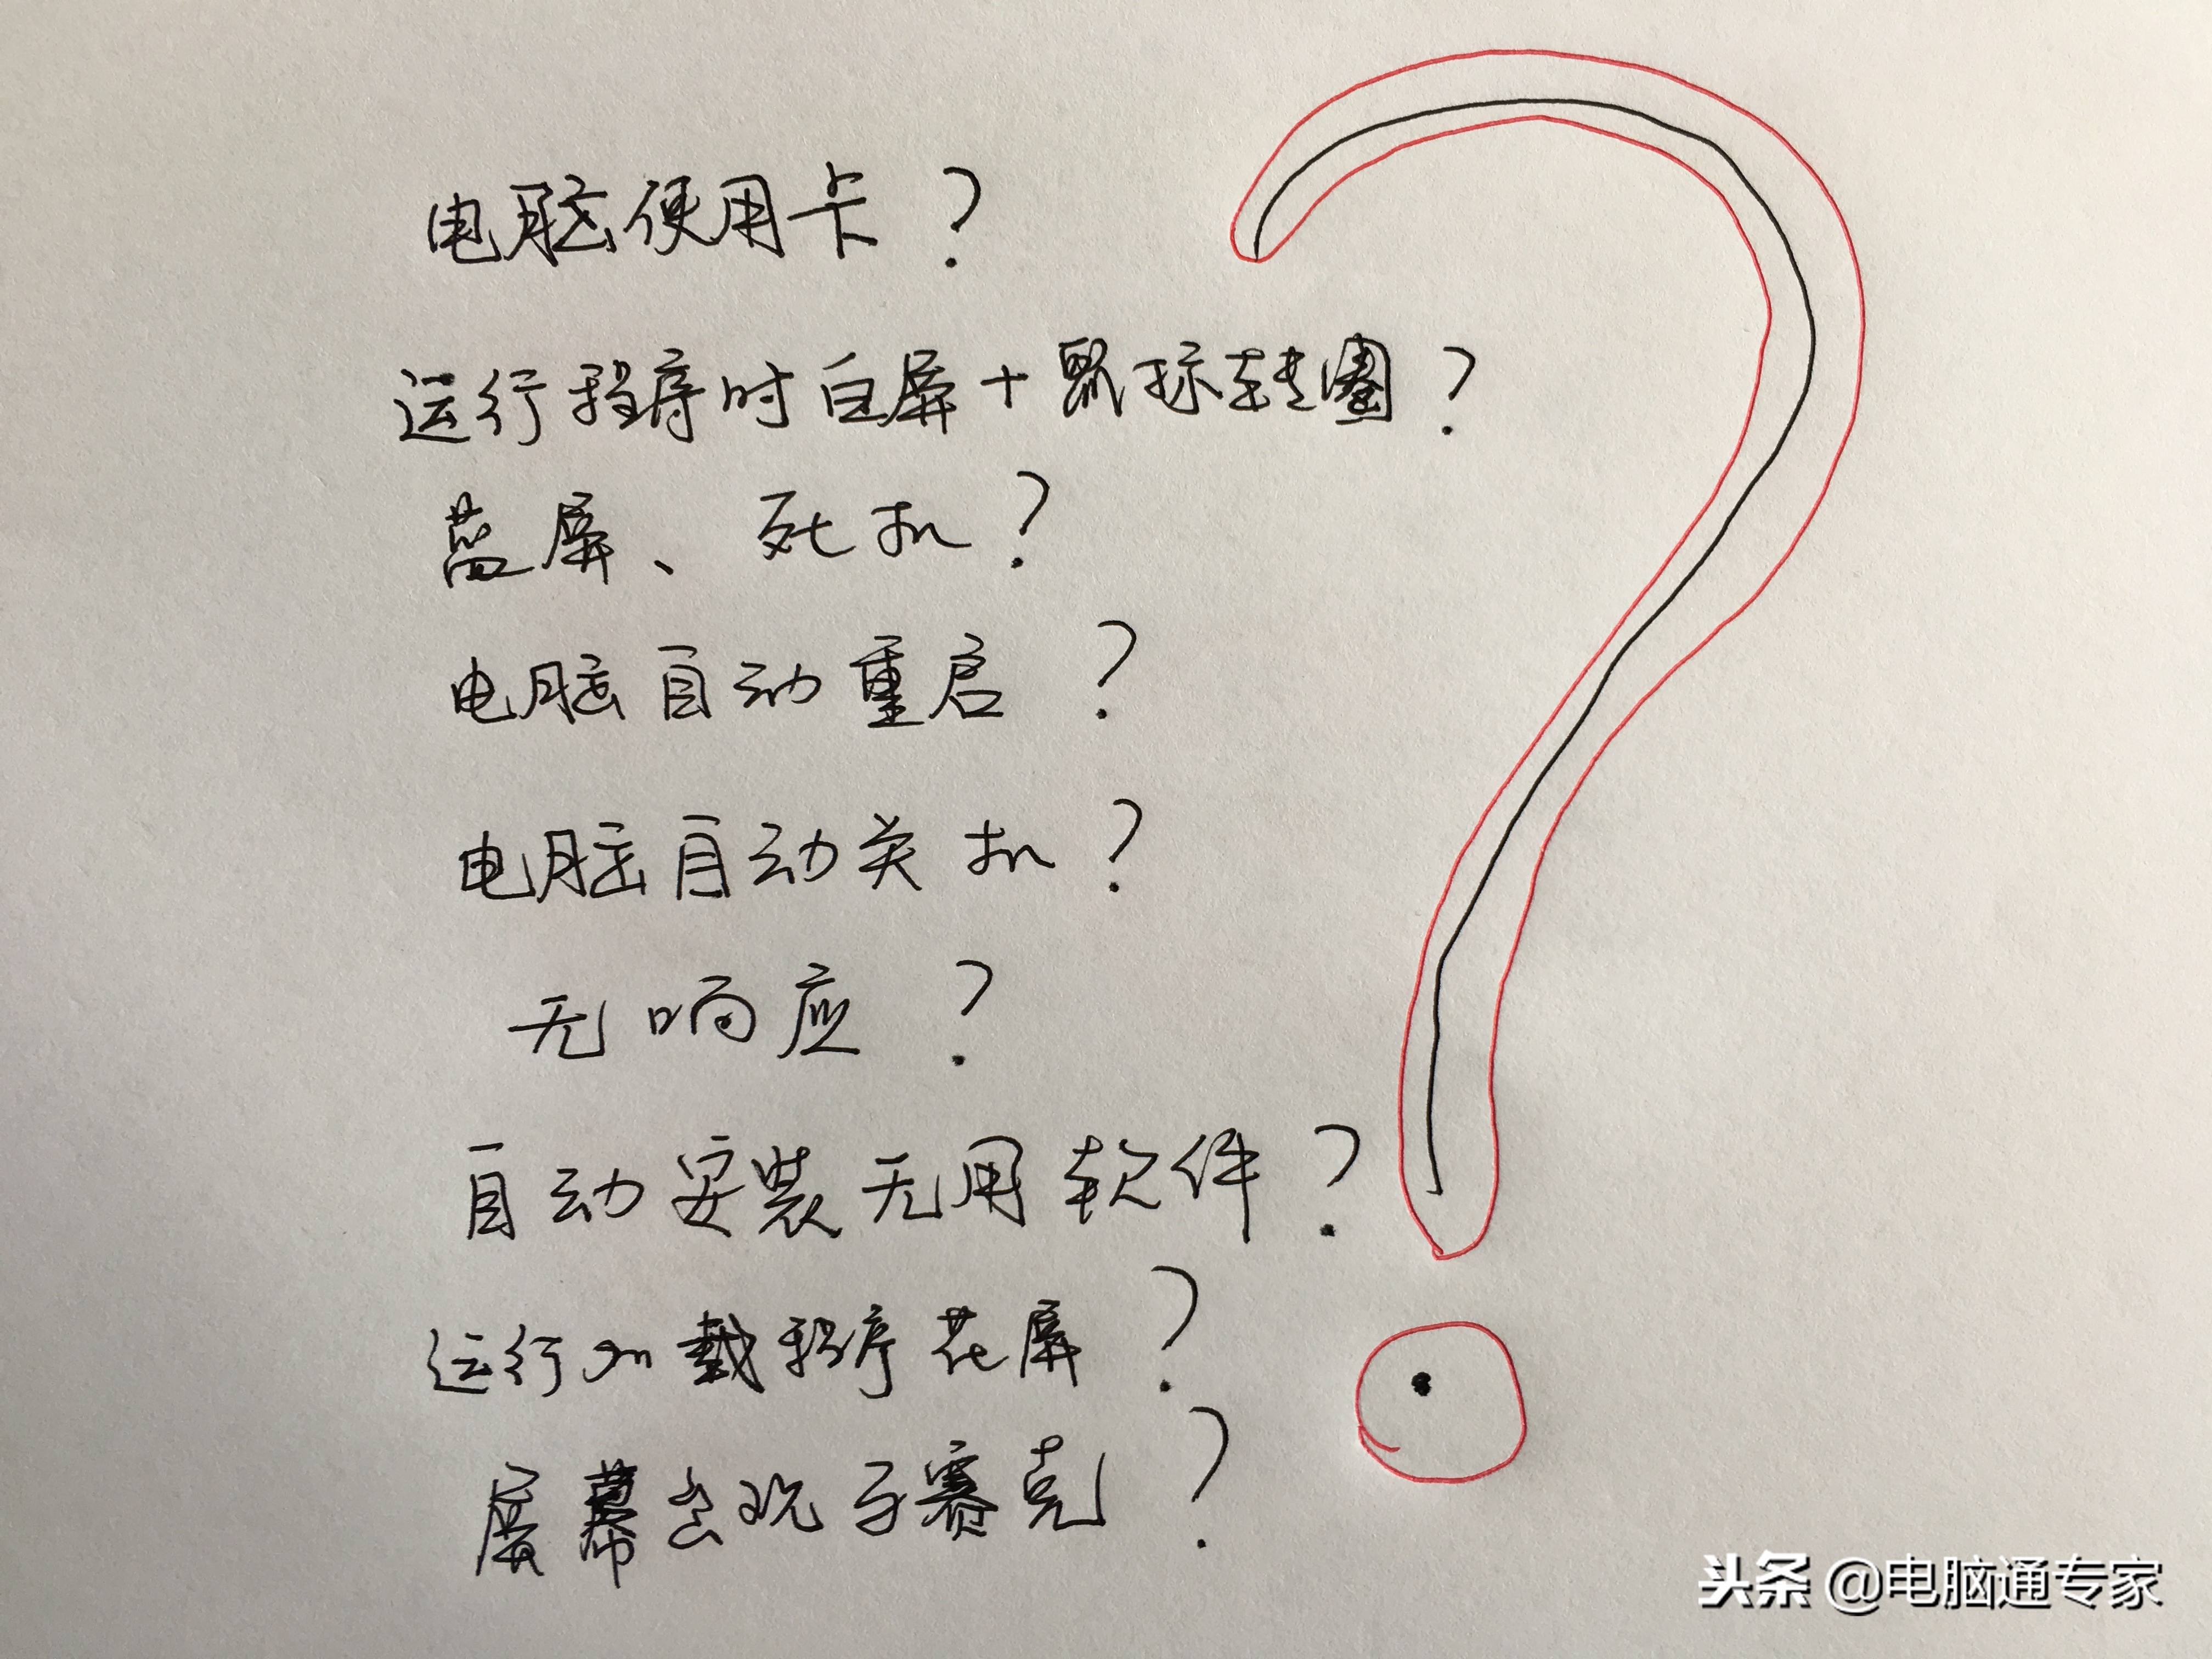 电脑使用卡？
运行程序时白屏+鼠标转圈？
蓝屏、死机？
电脑自动重启？
电脑自动关机？
无响应？
自动安装无用软件？
运行加载程序花屏？
屏幕出现马赛克？
头条 @电脑通专家